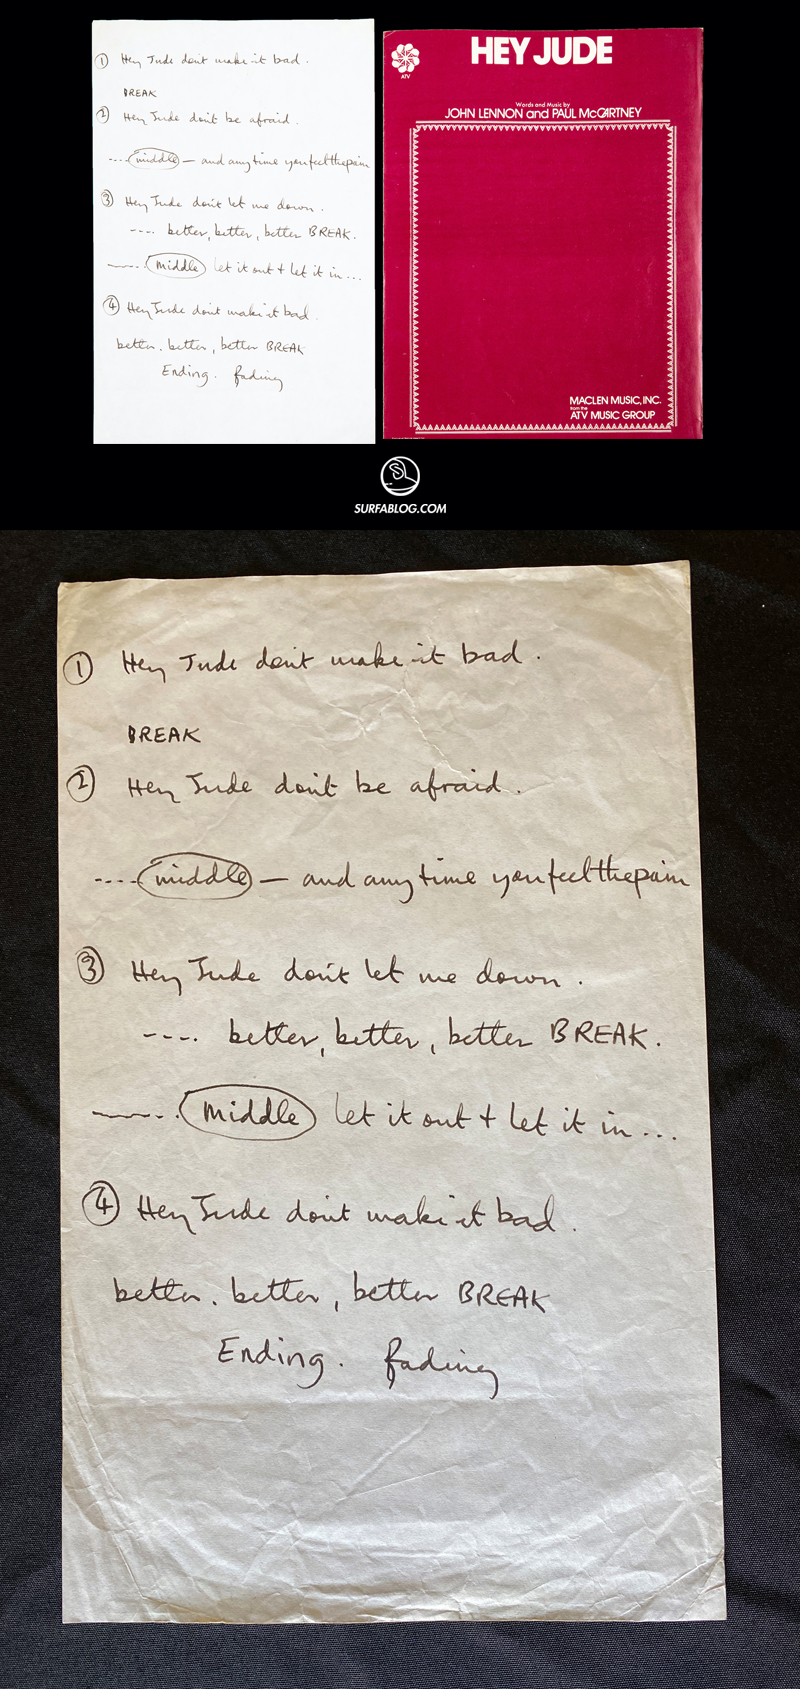 ① Hey Jude don't make it bad.
BREAK
② Hey Jude don't be afraid.
.... middle — and any time you feel the pain
③ Hey Jude don't let me down.
---- better, better, better BREAK.
-----.. middle let it out + let it in ...
④ Hey Jude don't make it bad.
better. better, better BREAK
Ending. fading
HEY JUDE
ATV
Words and Music by
JOHN LENNON and PAUL McCARTNEY
MACLEN MUSIC, INC.
from the
ATV MUSIC GROUP
SL
SURFABLOG.COM
① Hey Jude don't make it bad.
BREAK
② Hey Jude don't be afraid.
.... middle — and any time you feel the pain
③ Hey Jude don't let me down.
---- better, better, better BREAK.
-----.. middle let it out + let it in ...
④ Hey Jude don't make it bad.
better. better, better BREAK
Ending. fading